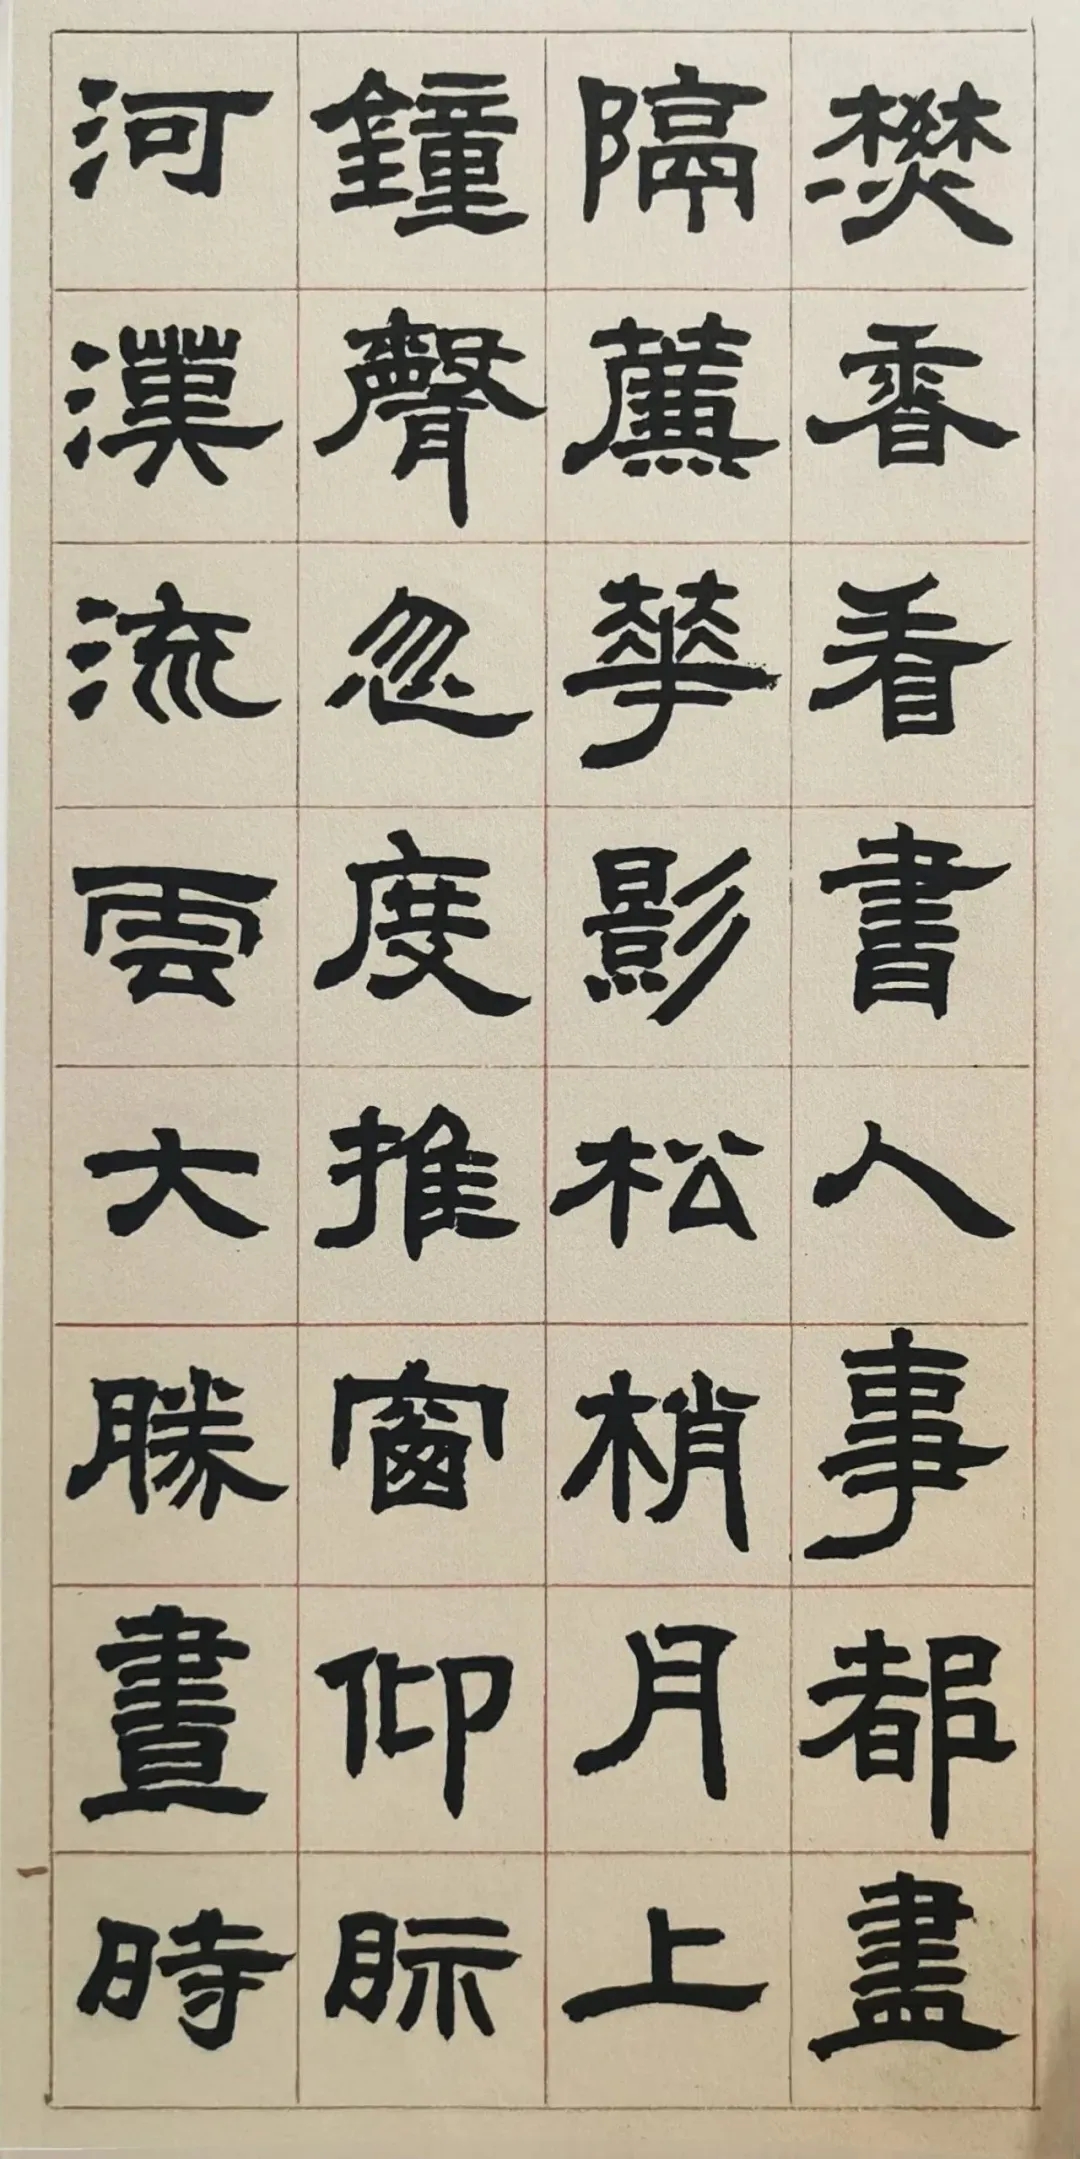 燓香看書人事都盡
隔簾華影松梢月上
鐘聲忽度推窗仰眎
河漢流雲大勝晝時